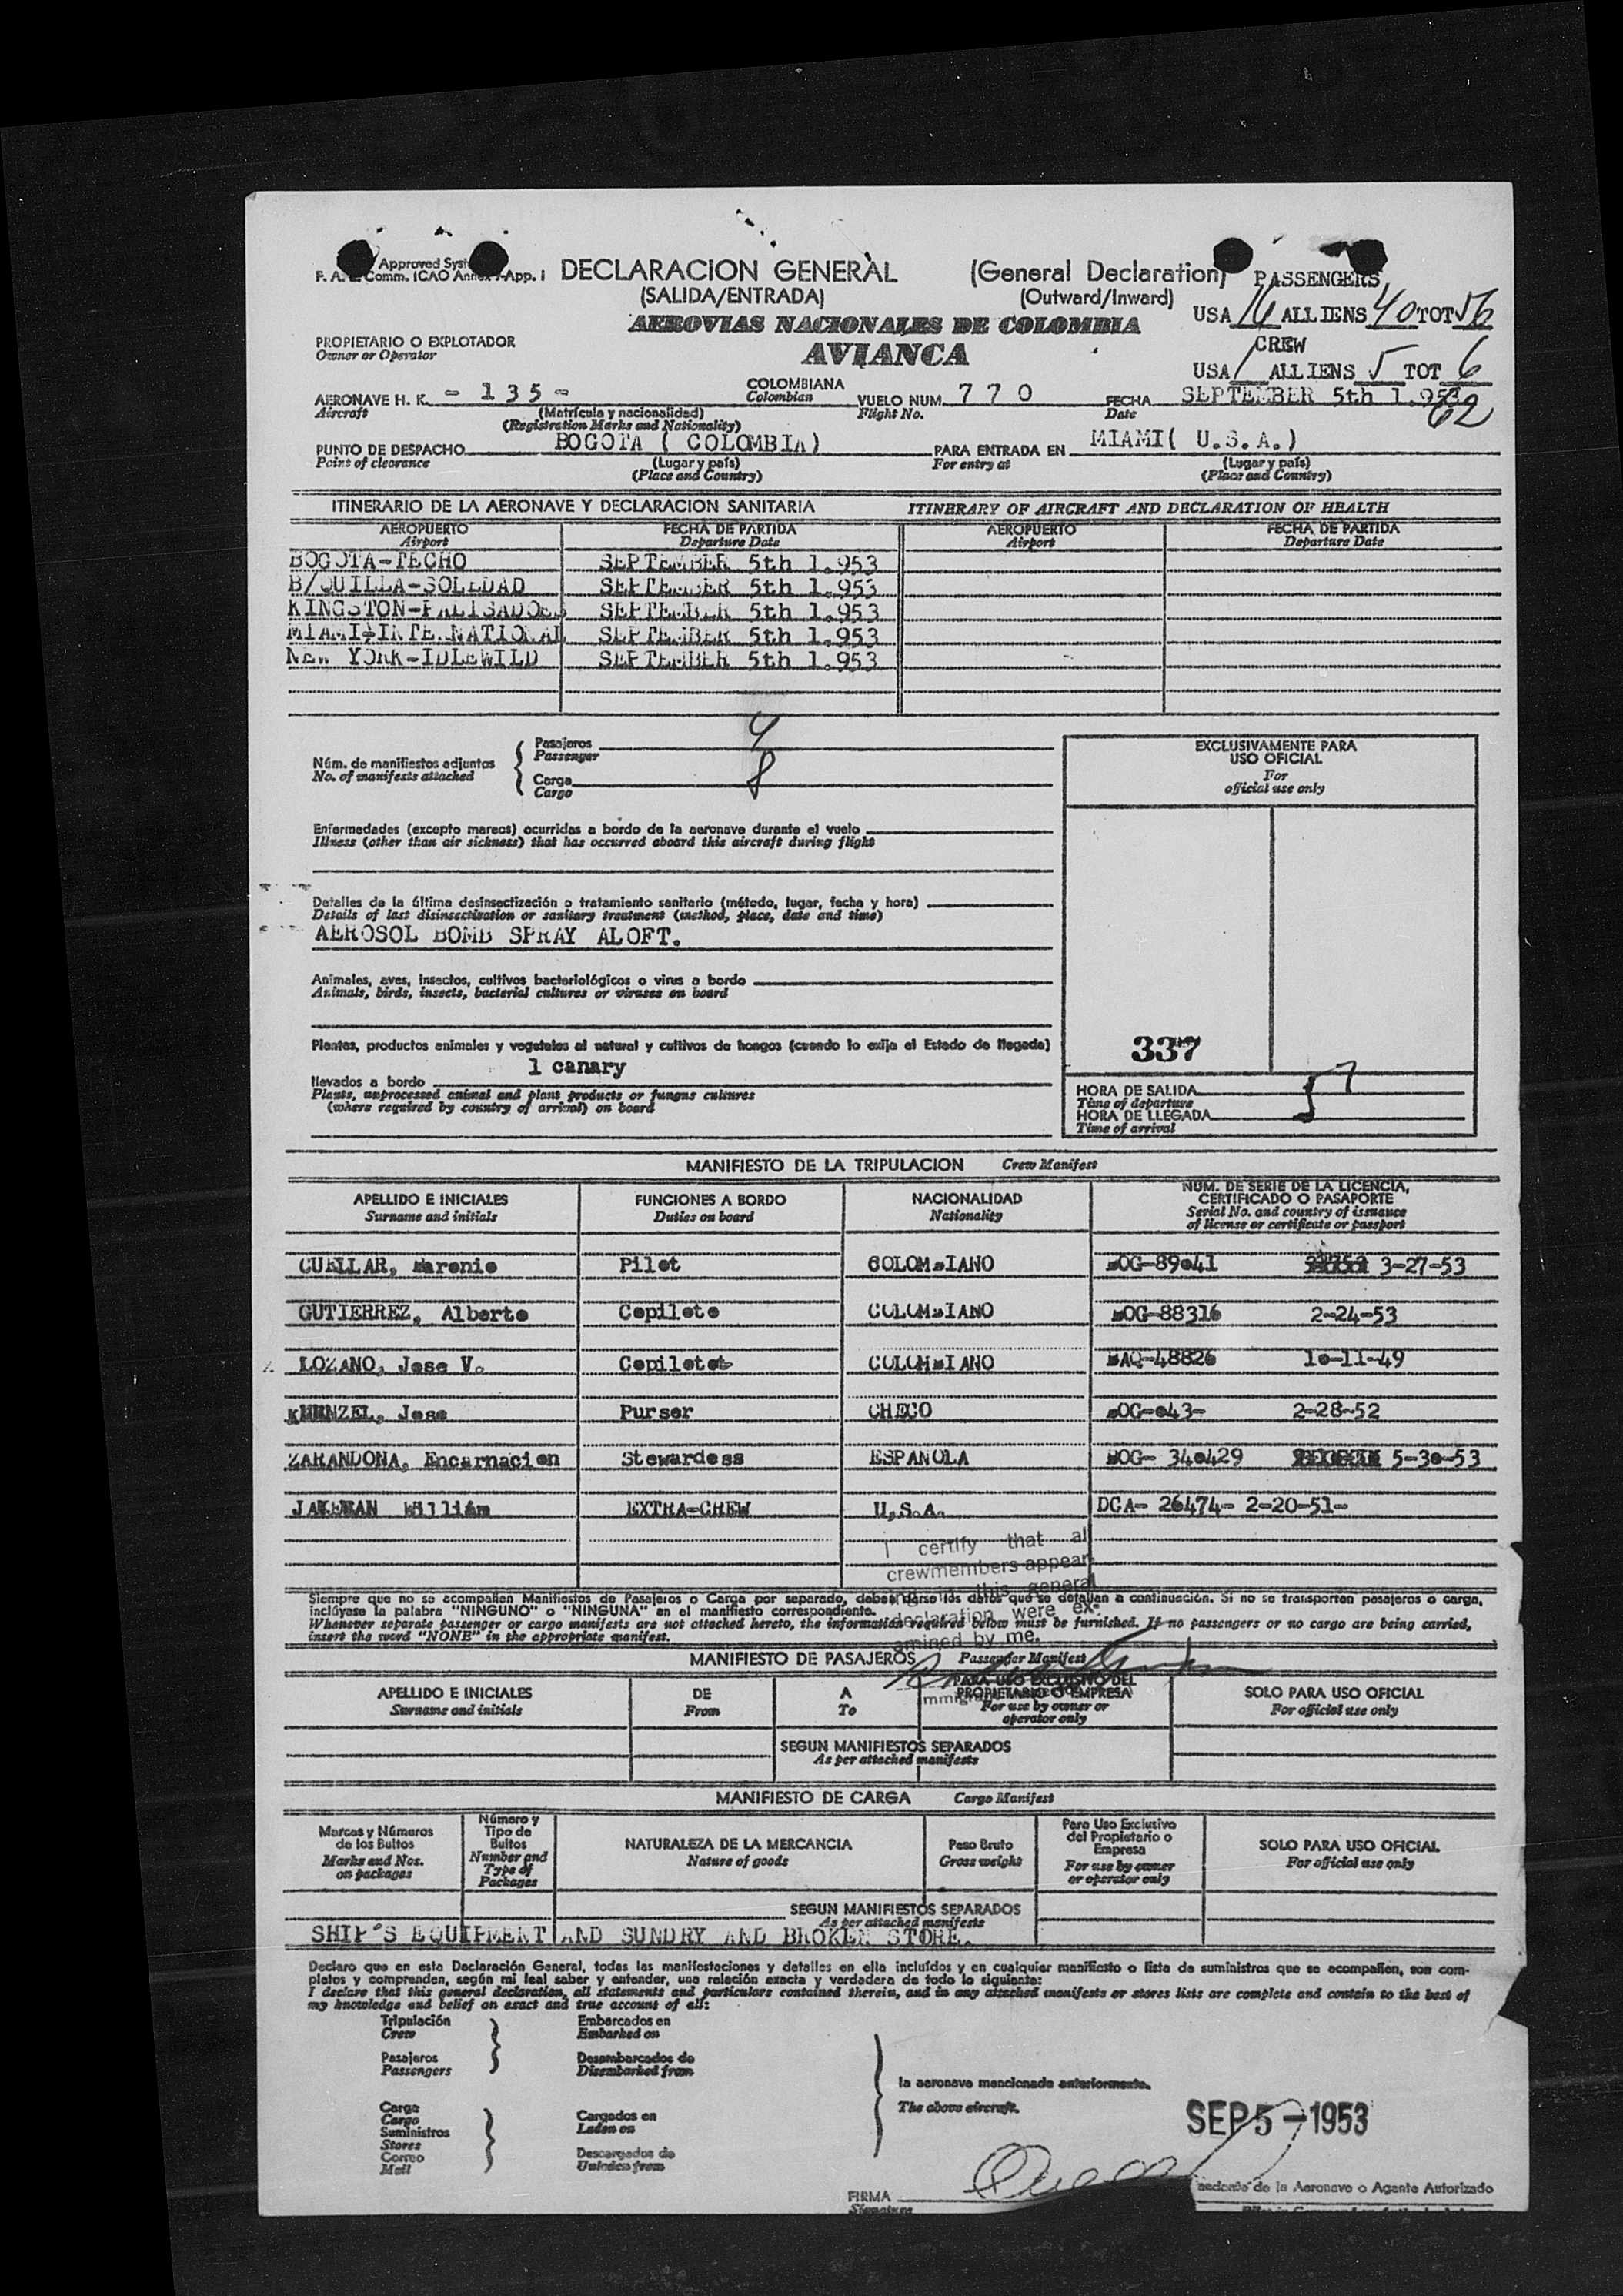 Approved Syst
F. A. L. Comm. ICAO Annex App. I
DECLARACION GENERAL (General Declaration)
(SALIDA/ENTRADA) (Outward/Inward)
PASSENGERS
USA 16 ALLIENS 40 TOT 56
AEROVIAS NACIONALES DE COLOMBIA
AVIANCA
CREW
USA 1 ALLIENS 5 TOT 6
62
PROPIETARIO O EXPLOTADOR
Owner or Operator
AERONAVE H. K. - 135- COLOMBIANA VUELO NUM. 770 FECHA SEPTEMBER 5th 1.953
Aircraft (Matrícula y nacionalidad) Colombian Flight No. Date
(Registration Marks and Nationality)
PUNTO DE DESPACHO BOGOTA ( COLOMBIA) PARA ENTRADA EN MIAMI( U.S.A.)
Point of clearance (Lugar y país) For entry at (Lugar y país)
(Place and Country) (Place and Country)
ITINERARIO DE LA AERONAVE Y DECLARACION SANITARIA ITINERARY OF AIRCRAFT AND DECLARATION OF HEALTH
AEROPUERTO FECHA DE PARTIDA AEROPUERTO FECHA DE PARTIDA
Airport Departure Date Airport Departure Date
BOGOTA-TECHO SEPTEMBER 5th 1.953
B/QUILLA-SOLEDAD SEPTEMBER 5th 1.953
KINGSTON-PALISADOES SEPTEMBER 5th 1.953
MIAMI-INTERNATIONAL SEPTEMBER 5th 1.953
NEW YORK-IDLEWILD SEPTEMBER 5th 1.953
Núm. de manifiestos adjuntos
No. of manifests attached
Pasajeros 4
Passenger
Carga 8
Cargo
EXCLUSIVAMENTE PARA
USO OFICIAL
For
official use only
Enfermedades (excepto mareos) ocurridas a bordo de la aeronave durante el vuelo
Illness (other than air sickness) that has occurred aboard this aircraft during flight
Detalles de la última desinsectización o tratamiento sanitario (método, lugar, fecha y hora)
Details of last disinsectization or sanitary treatment (method, place, date and time)
AEROSOL BOMB SPRAY ALOFT.
Animales, aves, insectos, cultivos bacteriológicos o virus a bordo
Animals, birds, insects, bacterial cultures or viruses on board
Plantas, productos animales y vegetales al natural y cultivos de hongos (cuando lo exija el Estado de llegada)
1 canary
llevados a bordo
Plants, unprocessed animal and plant products or fungus cultures
(where required by country of arrival) on board
337
HORA DE SALIDA
Time of departure
HORA DE LLEGADA
Time of arrival
MANIFIESTO DE LA TRIPULACION Crew Manifest
APELLIDO E INICIALES FUNCIONES A BORDO NACIONALIDAD NUM. DE SERIE DE LA LICENCIA, CERTIFICADO O PASAPORTE
Surname and initials Duties on board Nationality Serial No. and country of issuance of license or certificate or passport
CUELLAR, Maronio Pilot COLOMBIANO BOG-89041 3-27-53
GUTIERREZ, Alberto Copiloto COLOMBIANO BOG-88316 2-24-53
LOZANO, Jose V. Copiloto COLOMBIANO BAQ-48826 10-11-49
KUENZEL, Jose Purser CHECO BOG-043- 2-28-52
ZARANDONA, Encarnacion Stewardess ESPANOLA BOG- 340429 5-30-53
JAKEMAN William EXTRA-CREW U.S.A. DCA- 26474- 2-20-51-
I certify that al
crewmembers appear-
this general
declaration were ex-
amined by me.
Siempre que no se acompañen Manifiestos de Pasajeros o Carga por separado, deben darse los datos que se detallan a continuación. Si no se transportan pasajeros o carga,
inclúyase la palabra "NINGUNO" o "NINGUNA" en el manifiesto correspondiente.
Whenever separate passenger or cargo manifests are not attached hereto, the information required below must be furnished. If no passengers or no cargo are being carried,
insert the word "NONE" in the appropriate manifest.
MANIFIESTO DE PASAJEROS Passenger Manifest
APELLIDO E INICIALES DE A PARA USO EXCLUSIVO DEL PROPIETARIO O EMPRESA SOLO PARA USO OFICIAL
Surname and initials From To For use by owner or operator only For official use only
SEGUN MANIFIESTOS SEPARADOS
As per attached manifests
MANIFIESTO DE CARGA Cargo Manifest
Marcas y Números de los Bultos Número y Tipo de Bultos NATURALEZA DE LA MERCANCIA Peso Bruto Para Uso Exclusivo del Propietario o Empresa SOLO PARA USO OFICIAL
Marks and Nos. on packages Number and Type of Packages Nature of goods Gross weight For use by owner or operator only For official use only
SEGUN MANIFIESTOS SEPARADOS
As per attached manifests
SHIP'S EQUIPMENT AND SUNDRY AND BROKEN STORE.
Declaro que en esta Declaración General, todas las manifestaciones y detalles en ella incluídos y en cualquier manifiesto o lista de suministros que se acompañen, son com-
pletos y comprenden, según mi leal saber y entender, una relación exacta y verdadera de todo lo siguiente:
I declare that this general declaration, all statements and particulars contained therein, and in any attached manifests or stores lists are complete and contain to the best of
my knowledge and belief an exact and true account of all:
Tripulación Embarcados en
Crew Embarked on
Pasajeros Desembarcados de
Passengers Disembarked from
la aeronave mencionada anteriormente.
The above aircraft.
Carga Cargados en
Cargo Laden on
Suministros
Stores
Correo Descargados de
Mail Unladen from
SEP 5 - 1953
FIRMA
Signature
de la Aeronave o Agente Autorizado